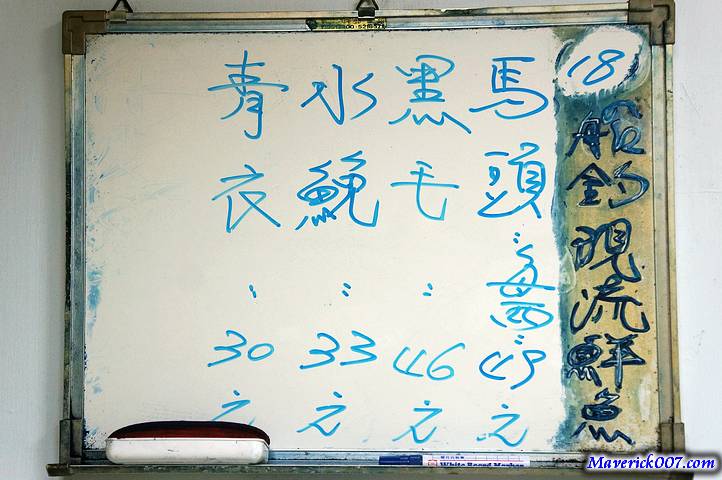 18
船釣現流鮮魚
馬頭：每兩：49元
黑毛：46元
水鮸：33元
青衣：30元
White Board Marker
Maverick007.com